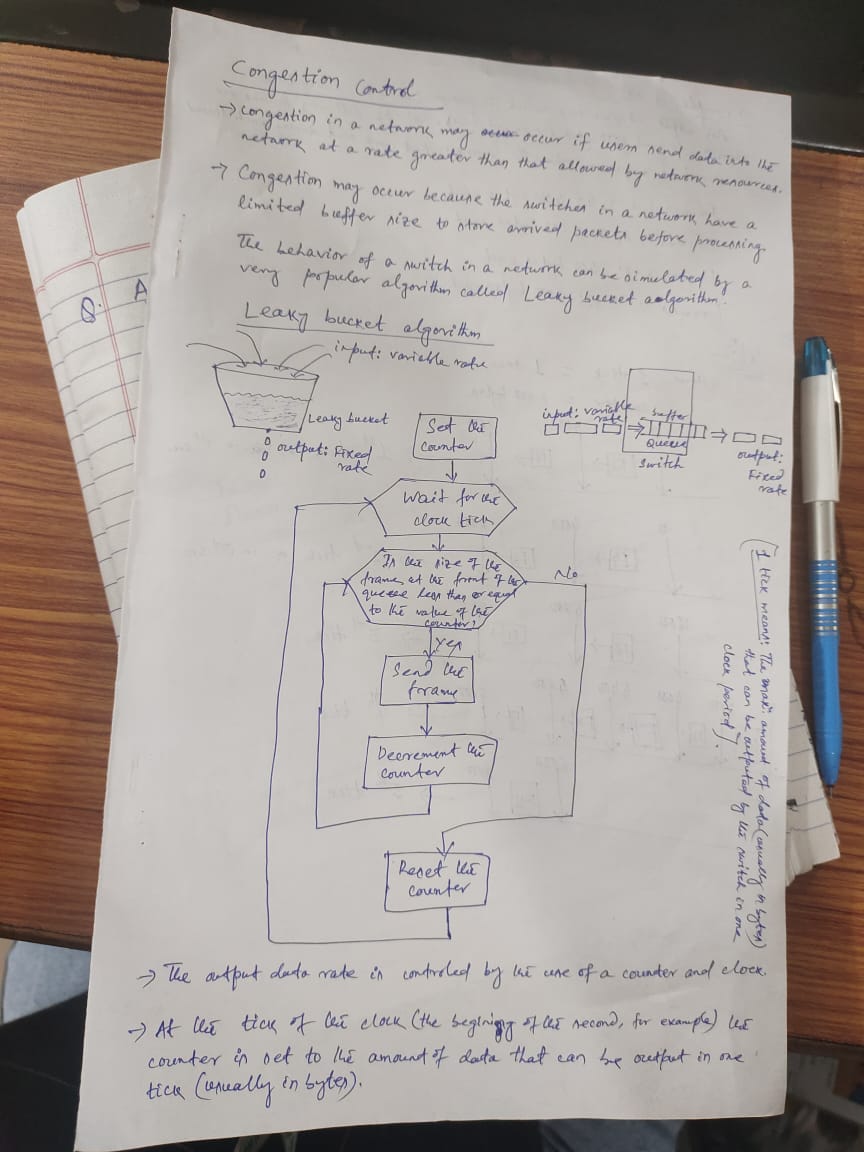 Congestion Control
→ congestion in a network may occur if users send data into the
network at a rate greater than that allowed by network resources.
→ Congestion may occur because the switches in a network have a
limited buffer size to store arrived packets before processing.
The behavior of a switch in a network can be simulated by a
very popular algorithm called Leaky bucket algorithm.
Leaky bucket algorithm
input: variable rate
Leaky bucket
output: Fixed
rate
input: variable
rate
buffer
Queue
switch
output:
Fixed
rate
Set the
counter
Wait for the
clock tick
Is the size of the
frame at the front of the
queue less than or equal
to the value of the
counter?
No
Yes
Send the
frame
Decrement the
counter
Reset the
counter
(1 tick means: The max^m amount of data (usually in bytes)
that can be outputed by the switch in one
clock period).
→ The output data rate is controled by the use of a counter and clock.
→ At the tick of the clock (the begining of the second, for example) the
counter is set to the amount of data that can be output in one
tick (usually in bytes).
Q.
A